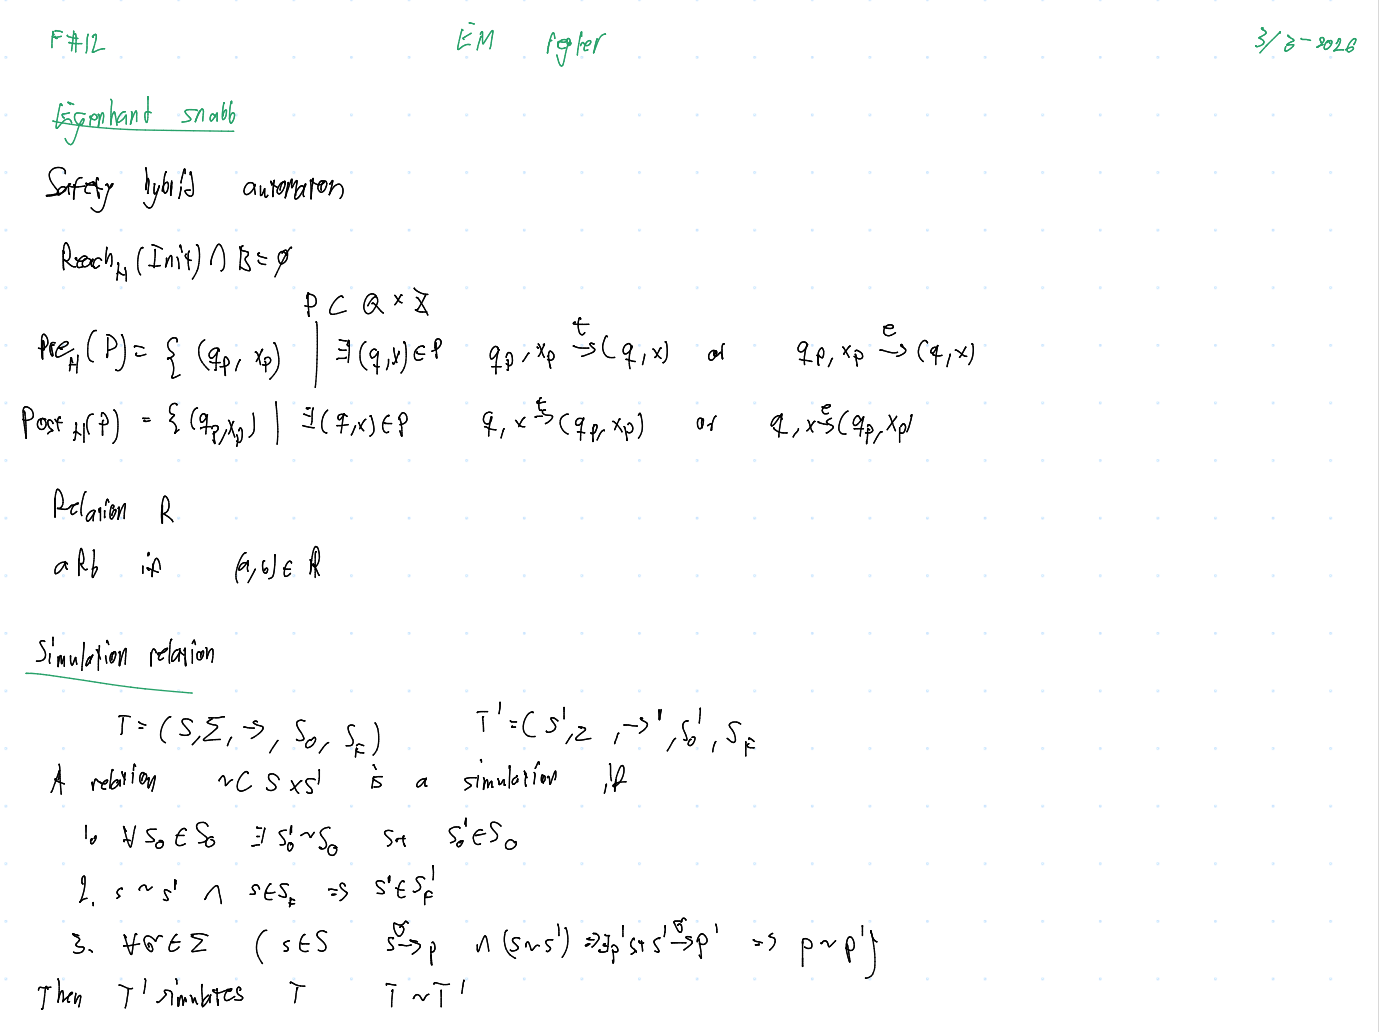 F#12 EM regler 3/3-2026
Egenhand snabb
Safety hybrid automaton
Reach_H (Init) ∩ B = ∅
P ⊂ Q × X
Pre_H (P) = { (q_p, x_p) | ∃ (q,x) ∈ P q_p, x_p →^t (q,x) or q_p, x_p →^e (q,x)
Post_H (P) = { (q_p, x_p) | ∃ (q,x) ∈ P q, x →^t (q_p, x_p) or q, x →^e (q_p, x_p)
Relation R
aRb if (a,b) ∈ R
Simulation relation
T = (S, Σ, →, S_0, S_F) T' = (S', Σ, →', S_0', S_F
A relation ~ ⊂ S × S' is a simulation if
1. ∀ s_0 ∈ S_0 ∃ s_0' ~ s_0 st s_0' ∈ S_0
2. s ~ s' ∧ s ∈ S_F => s' ∈ S_F'
3. ∀σ ∈ Σ ( s ∈ S s →^σ p ∧ (s ~ s') => ∃p' st s' →^σ p' => p ~ p' )
Then T' simulates T T ~ T'